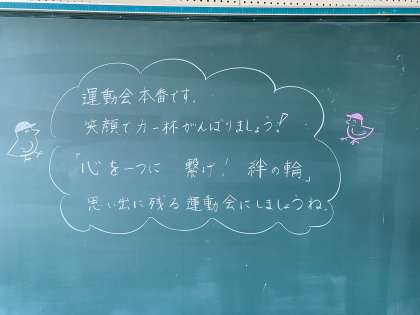 運動会本番です。
笑顔で力一杯がんばりましょう!
「心を一つに 繋げ! 絆の輪」
思い出に残る運動会にしましょうね。